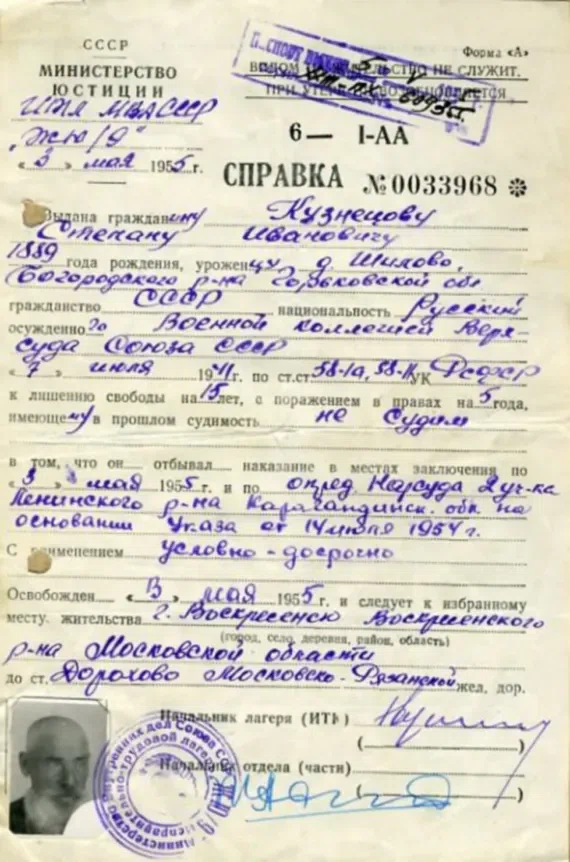 СССР
МИНИСТЕРСТВО
ЮСТИЦИИ
МВД СССР
„ЖЮ/9"
« 3 » мая 1955 г.
Форма «А»
ВИДОМ НА ЖИТЕЛЬСТВО НЕ СЛУЖИТ.
ПРИ УТЕРЕ НЕ ВОЗОБНОВЛЯЕТСЯ
6— I-АА
СПРАВКА №0033968
Выдана гражданину Кузнецову
Степану Ивановичу
1889 года рождения, уроженцу д. Шилово,
Богородского р-на Горьковской обл
гражданство СССР национальность Русский
осужденного Военной коллегией Верх-
суда Союза СССР
« 7 » июля 1941 г. по ст.ст. 58-1а, УК РСФСР
к лишению свободы на 15 лет, с поражением в правах на 5 года,
имеющему в прошлом судимость не судим
в том, что он отбывал наказание в местах заключения по
« 3 » мая 1955 г. и по опред. Нарсуда 2 уч-ка
Ленинского р-на Карагандинск. обл. на
основании Указа от 14 июля 1954 г.
С применением условно-досрочно
Освобожден « » мая 1955 г. и следует к избранному
месту жительства г. Воскресенск Воскресенского
(город, село, деревня, район, область)
р-на Московской области
до ст. Дорохово Московско-Рязанской жел. дор.
Начальник лагеря (ИТК)
( )
Начальник отдела (части)
( )
Министерство внутренних дел Союза
Исправительно-трудовой лагерь